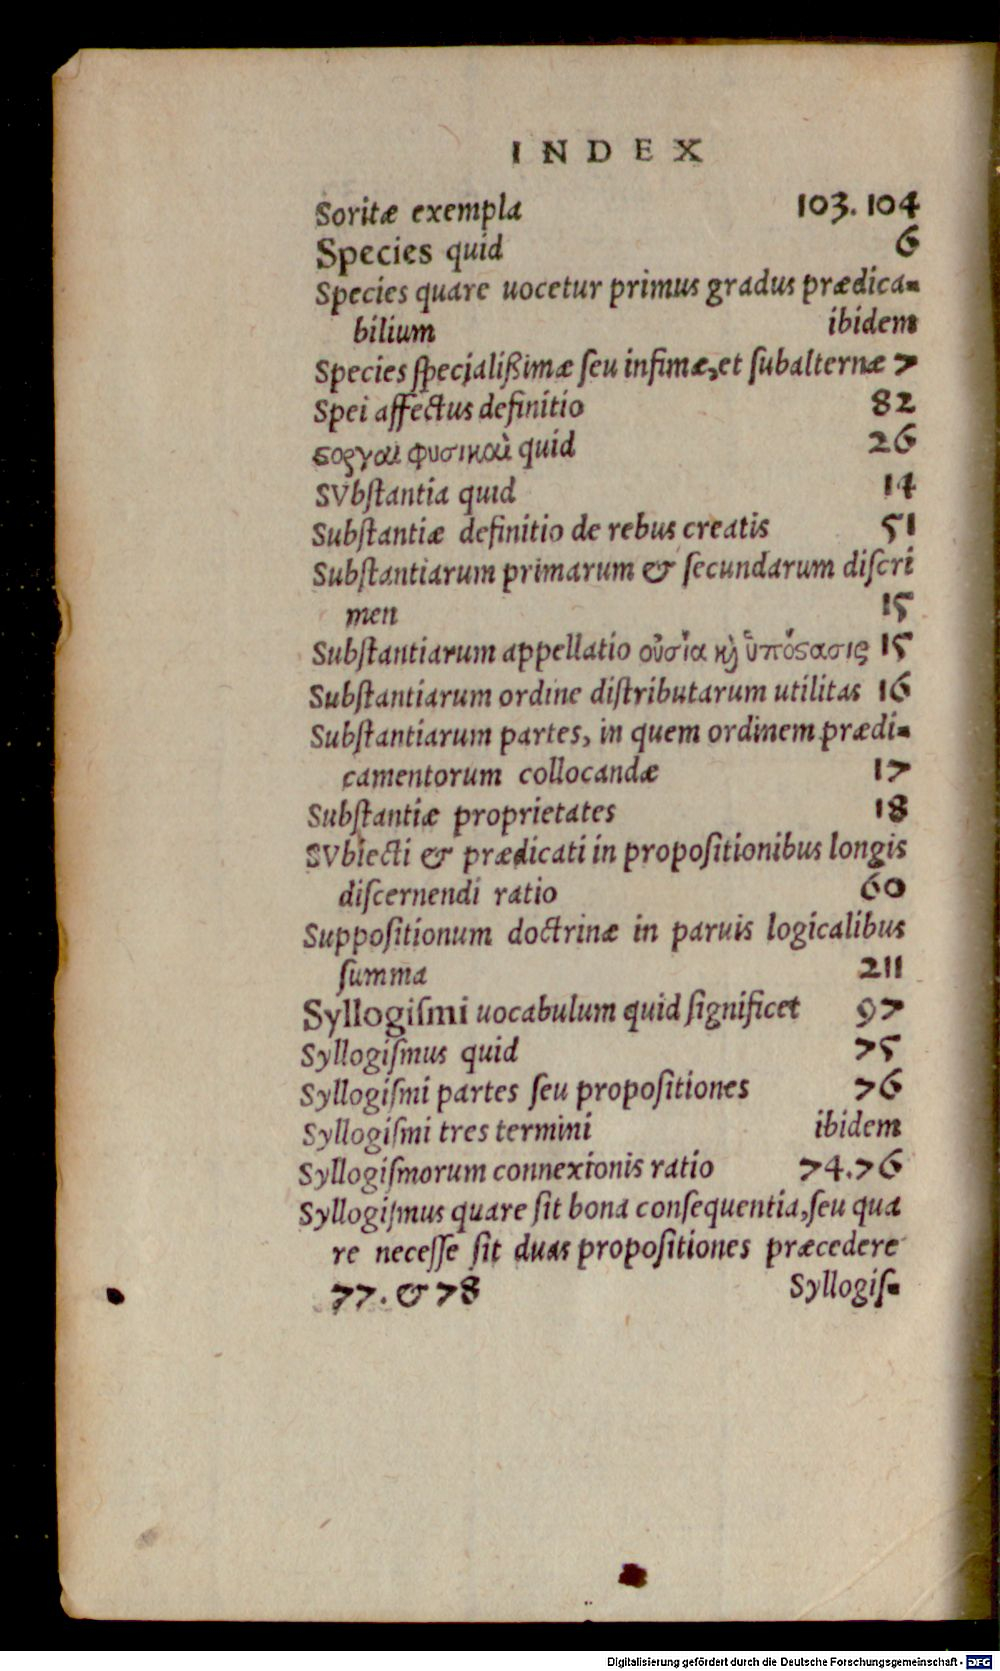 INDEX
Soritæ exempla 103. 104
Species quid 6
Species quare uocetur primus gradus prædica-
bilium ibidem
Species ſpecialißimæ ſeu infimæ, et ſubalternæ 7
Spei affectus definitio 82
ϛοργαὶ φυσικαὶ quid 26
SVbſtantia quid 14
Subſtantiæ definitio de rebus creatis 51
Subſtantiarum primarum & ſecundarum diſcri
men 15
Subſtantiarum appellatio οὐσία ϗ ὑπόϛασις 15
Subſtantiarum ordine diſtributarum utilitas 16
Subſtantiarum partes, in quem ordinem prædi-
camentorum collocandæ 17
Subſtantiæ proprietates 18
SVbiecti & prædicati in propoſitionibus longis
diſcernendi ratio 60
Suppoſitionum doctrinæ in paruis logicalibus
ſumma 211
Syllogiſmi uocabulum quid ſignificet 97
Syllogiſmus quid 75
Syllogiſmi partes ſeu propoſitiones 76
Syllogiſmi tres termini ibidem
Syllogiſmorum connexionis ratio 74.76
Syllogiſmus quare ſit bona conſequentia, ſeu qua
re neceſſe ſit duas propoſitiones præcedere
77. & 78 Syllogiſ-
Digitalisierung gefördert durch die Deutsche Forschungsgemeinschaft - DFG